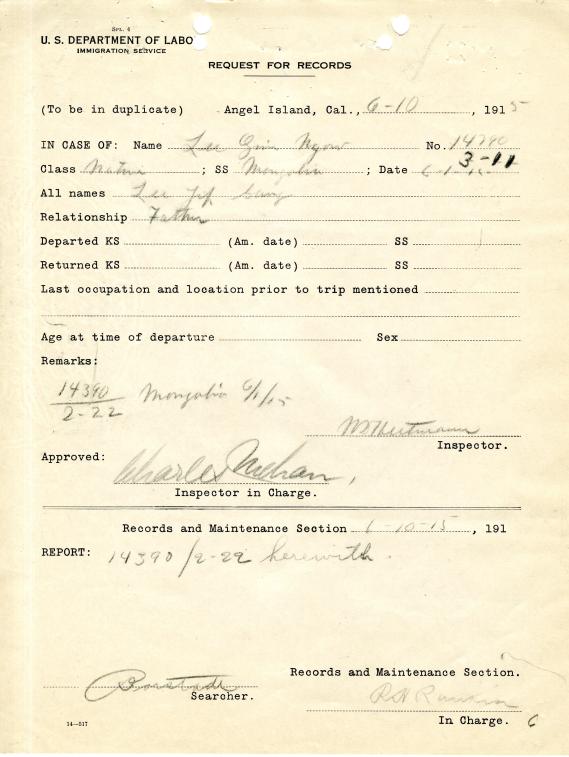 Spl. 4
U. S. DEPARTMENT OF LABO
IMMIGRATION SERVICE
REQUEST FOR RECORDS
(To be in duplicate) Angel Island, Cal., 6-10, 1915
IN CASE OF: Name Lee Gim Ngow No. 14390
3-11
Class Native; SS Mongolia; Date 6-1-15
All names Lee Yip Sung
Relationship Father
Departed KS (Am. date) SS
Returned KS (Am. date) SS
Last occupation and location prior to trip mentioned
Age at time of departure Sex
Remarks:
14390 Mongolia 6/1/15
2-22
Inspector.
Approved:
Charles Mehan,
Inspector in Charge.
Records and Maintenance Section 6-10-15, 191
REPORT: 14390/2-22 herewith.
Records and Maintenance Section.
Searcher.
R H Rankin
In Charge. 6
14—517